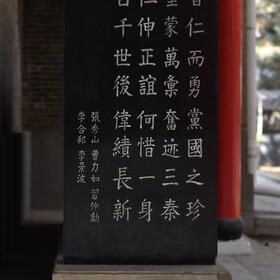 仁而勇黨國之珍
蒙萬彙奮迹三秦
仁伸正誼何惜一身
千世後偉績長新
張秀山 曹力如 習仲勳
李合邦 李景波